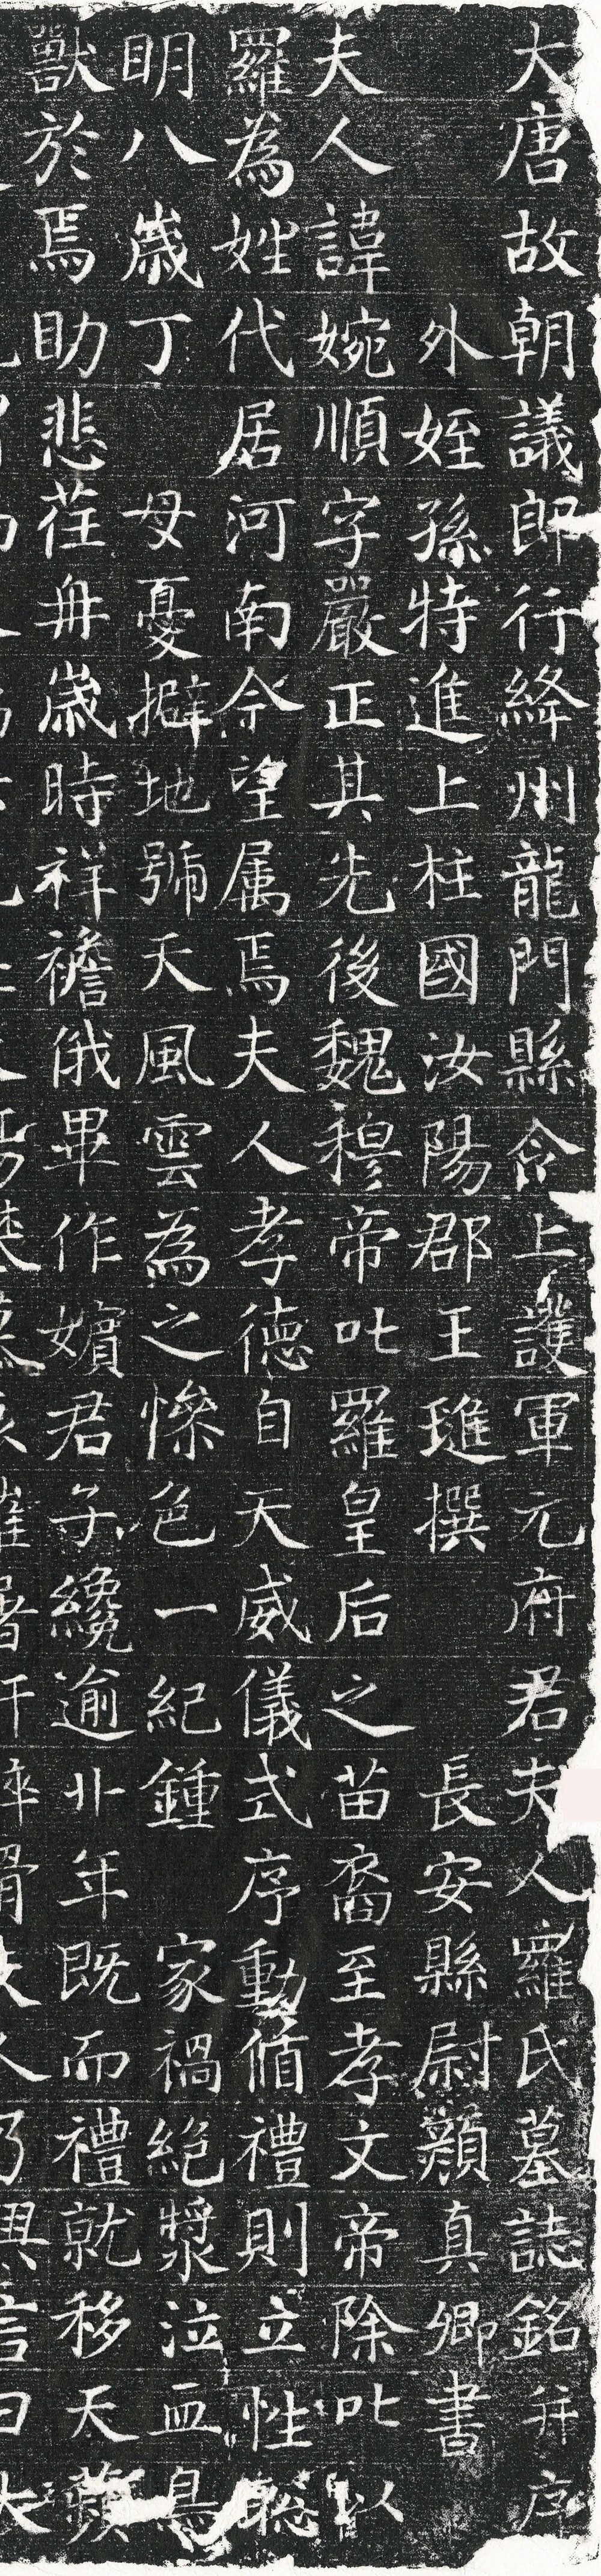 大唐故朝議郎行絳州龍門縣令上護軍元府君夫人羅氏墓誌銘并序
外姪孫特進上柱國汝陽郡王璡撰 長安縣尉顏真卿書
夫人諱婉順字嚴正其先後魏穆帝叱羅皇后之苗裔至孝文帝除叱以
羅為姓代居河南今望属焉夫人孝德自天威儀式序動循禮則立性聡
明八歲丁 母憂擗地號天風雲為之慘色一紀鍾 家禍絕漿泣血鳥
獸於焉助悲荏苒歲時祥禫俄畢作嬪君子纔逾卝年既而禮就移天蘋